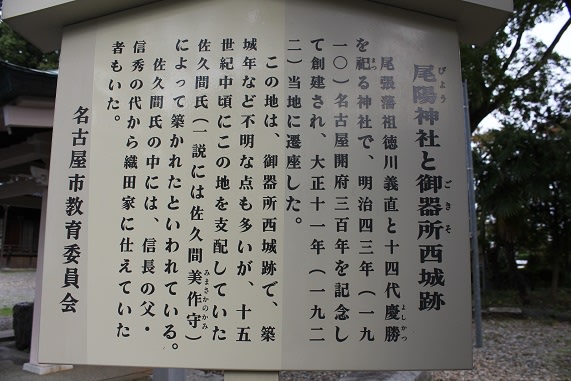 尾陽神社と御器所西城跡
びよう
ごきそ
尾張藩祖徳川義直と十四代慶勝
よしかつ
を祀る神社で、明治四三年（一九
まつ
一〇）名古屋開府三百年を記念し
て創建され、大正十一年（一九二
二）当地に遷座した。
この地は、御器所西城跡で、築
城年など不明な点も多いが、十五
世紀中頃にこの地を支配していた
佐久間氏（一説には佐久間美作守）
みまさかのかみ
によって築かれたといわれている。
佐久間氏の中には、信長の父・
信秀の代から織田家に仕えていた
者もいた。
名古屋市教育委員会